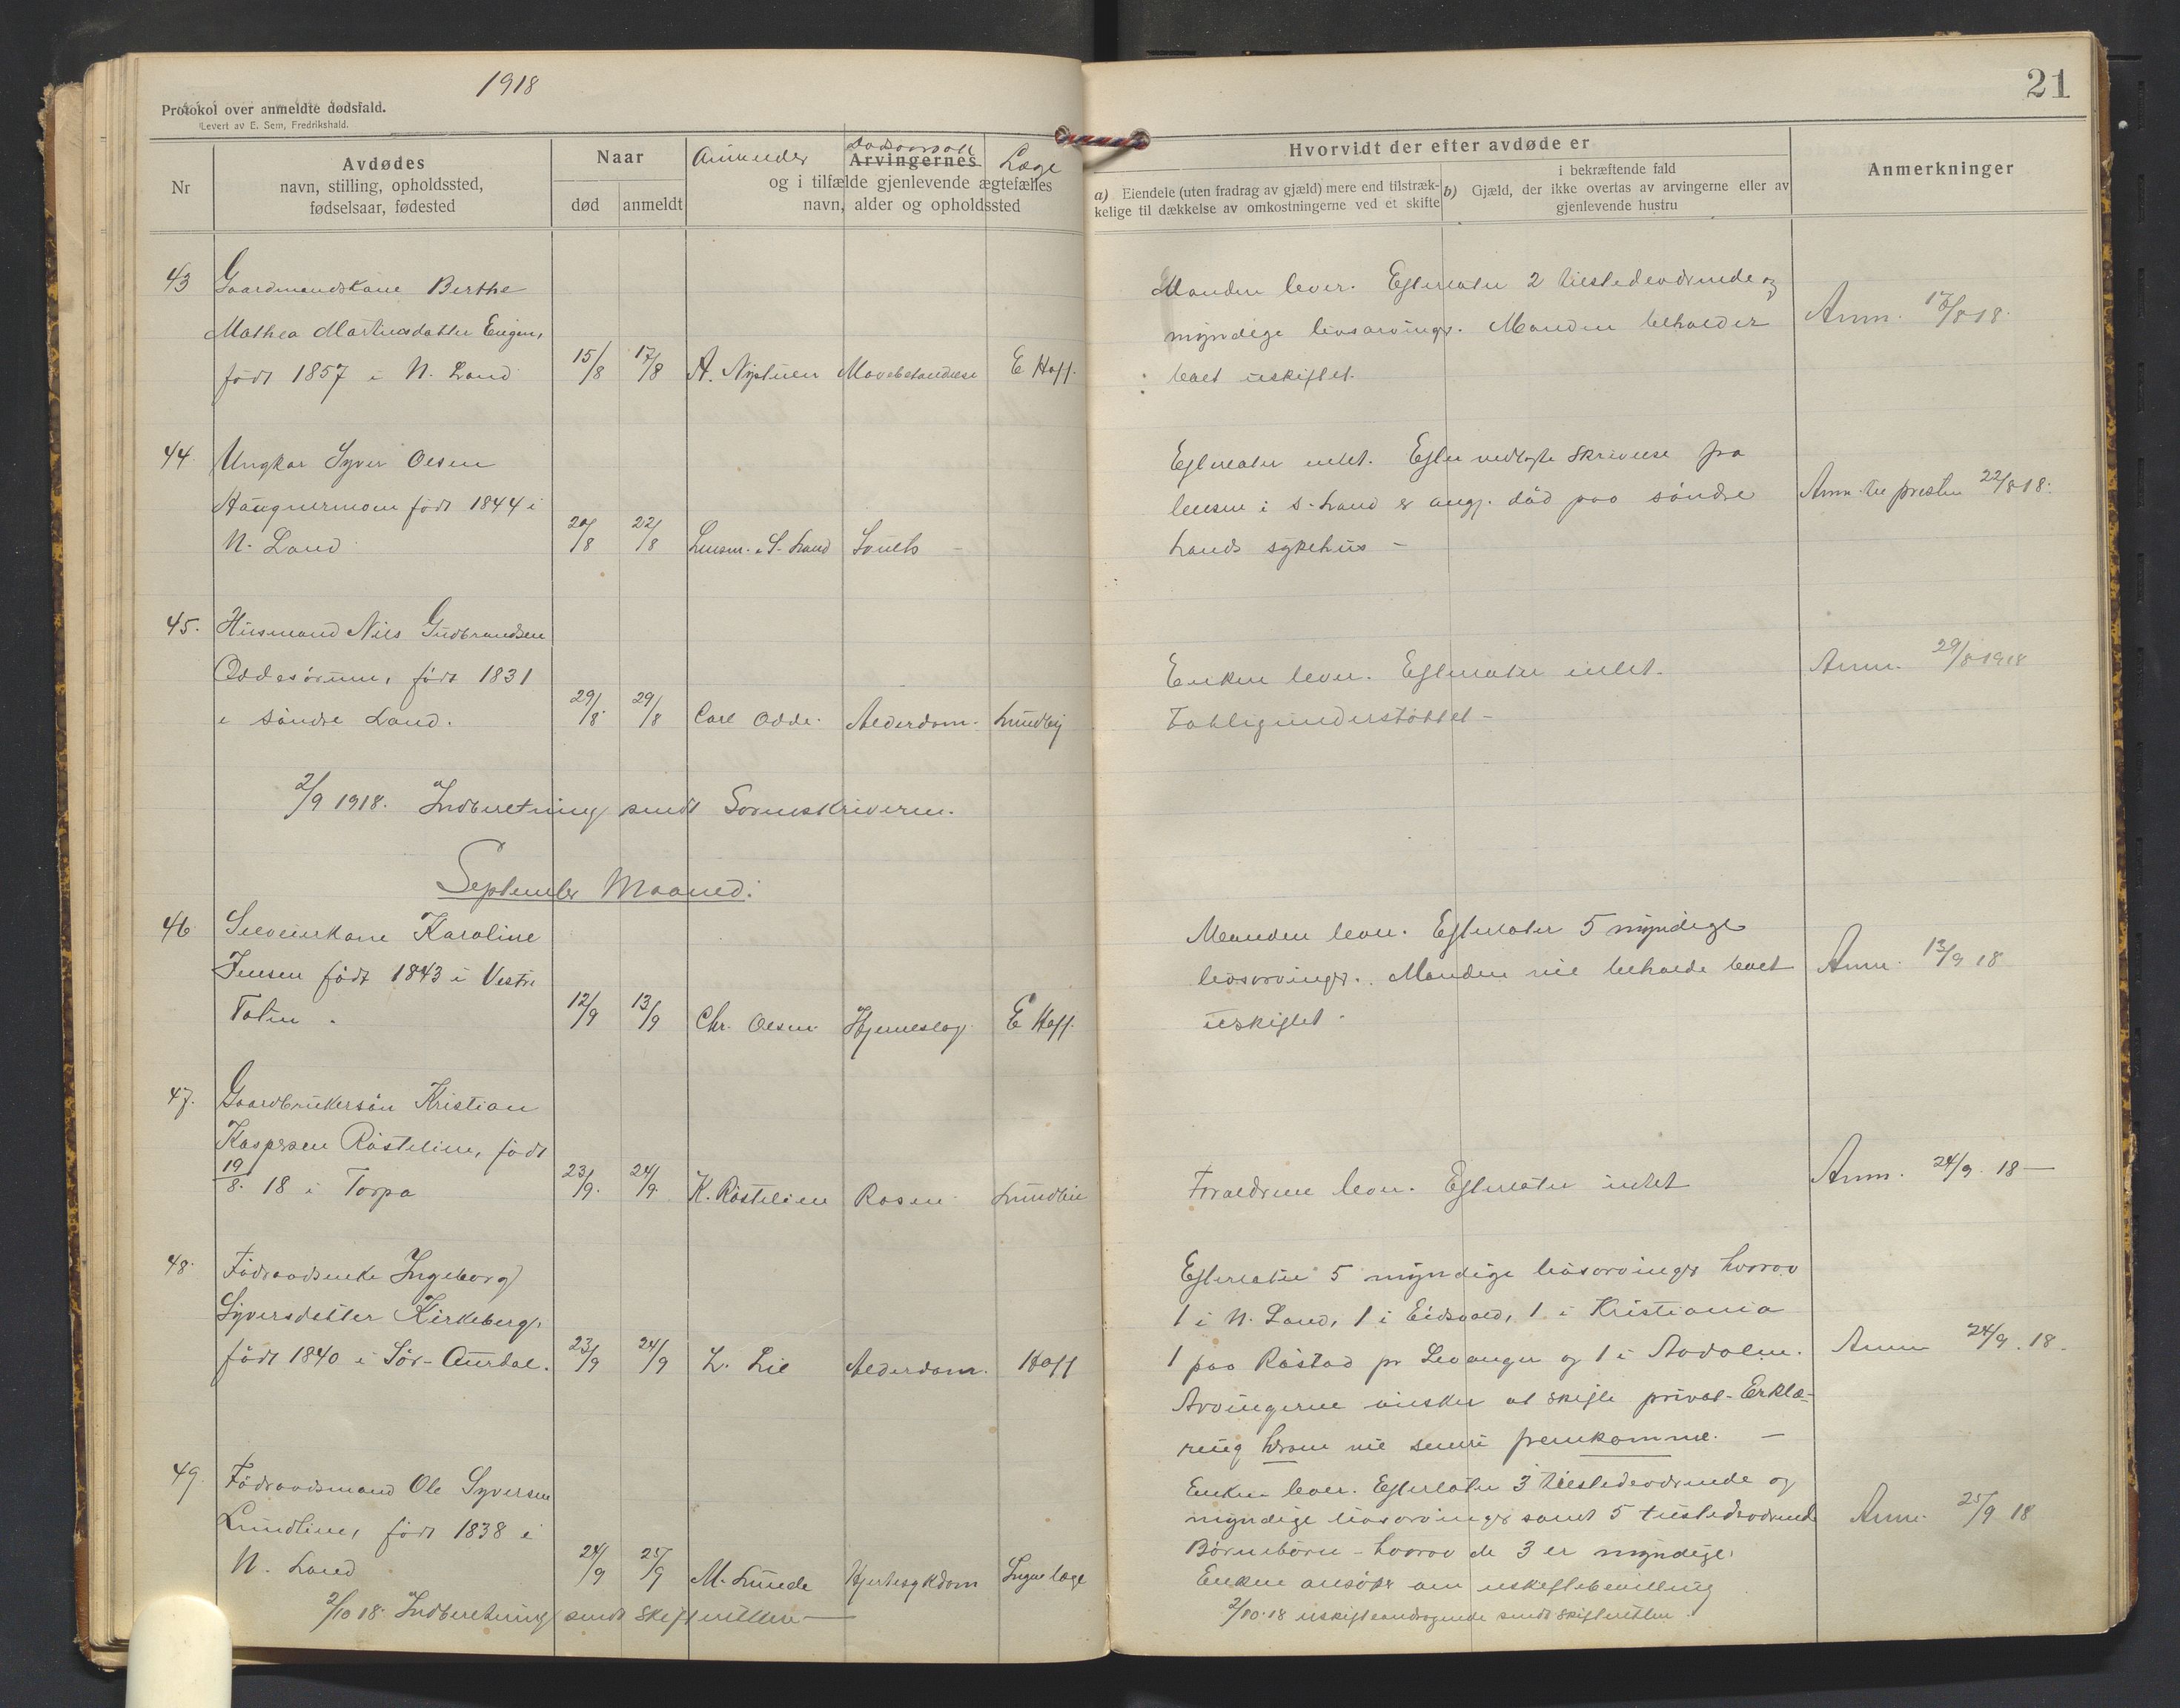 1918
21
Protokol over anmeldte dødsfald.
Levert av E. Sem, Fredrikshald.
Nr
Avdødes
navn, stilling, opholdssted,
fødselsaar, fødested
Naar
død
anmeldt
Anmelder
Dødsaarsak
Læge
Arvingernes
og i tilfælde gjenlevende ægtefælles
navn, alder og opholdssted
Hvorvidt der efter avdøde er
a) Eiendele (uten fradrag av gjæld) mere end tilstræk-
kelige til dækkelse av omkostningerne ved et skifte
i bekræftende fald
b) Gjæld, der ikke overtas av arvingerne eller av
gjenlevende hustru
Anmerkninger
43 Gaardmandskone Berthe
Mathea Martinusdatter Engen,
født 1857 i N. Land 15/8 17/8 A. Nystuen Mavebetændelse E Hoff.
Manden lever. Efterlater 2 tilstedeværende og
myndige livsarvinger. Manden beholder
boet uskiftet.
Anm. 17/8 18.
44 Ungkar Syver Olsen
Haugnermoen født 1844 i
N. Land 20/8 22/8 Lensm. i S. Land
Efterlater intet. Efter vedlagte skrivelse fra
lensm i S. Land er angj. død paa søndre
Lands sykehus –
Anm. til presten 22/8 18.
45. Husmand Nils Gudbrandsen
Oddesørum, født 1831
i søndre Land. 29/8 29/8 Carl Odde. Alderdom. Lundby
Enken lever. Efterlater intet.
Fattigunderstøttet –
Anm. 29/8 1918
2/9 1918. Indberetning sendt Sorenskriveren.
September Maaned.
46 Selveierkone Karoline
Jensen født 1843 i Vestre
Toten. 12/9 13/9 Chr. Olsen Hjerneslag E Hoff.
Manden lever. Efterlater 5 myndige
livsarvinger. Manden vil beholde boet
uskiftet.
Anm. 13/9 18
47. Gaardbrukersøn Kristian
Kaspersen Røstelien, født
19/8. 18 i Torpa 23/9. 24/9. K. Røstelien Rosen Lundbie
Foraeldrene lever. Efterlater intet
Anm. 24/9. 18 –
48. Føderaadsenke Ingeborg
Syversdatter Kirkeberg,
født 1840 i Sør-Aurdal. 23/9 24/9 L. Lie Alderdom. Hoff
Efterlater 5 myndige livsarvinger hvorav
1 i N. Land, 1 i Eidsvold, 1 i Kristiania
1 paa Røstad pr Levanger og 1 i Aadalen.
Arvingerne ønsker at skifte privat. Erklæ-
ring herom vil senere fremkomme. –
Anm 24/9. 18.
49. Føderaadsmand Ole Syversen
Lundlien, født 1838 i
N. Land 24/9 25/9 M. Lunde Hjertesykdom Ingen læge
Enken lever. Efterlater 3 tilstedeværende og
myndige livsarvinger samt 5 tilstedeværende
Børnebørn – hvorav de 3 er myndige.
Enken ansøker om uskiftebevilling
2/10. 18 uskifteandragende sendt skifteretten.
Anm. 25/9 18
2/10 18. Indberetning sendt skifteretten –